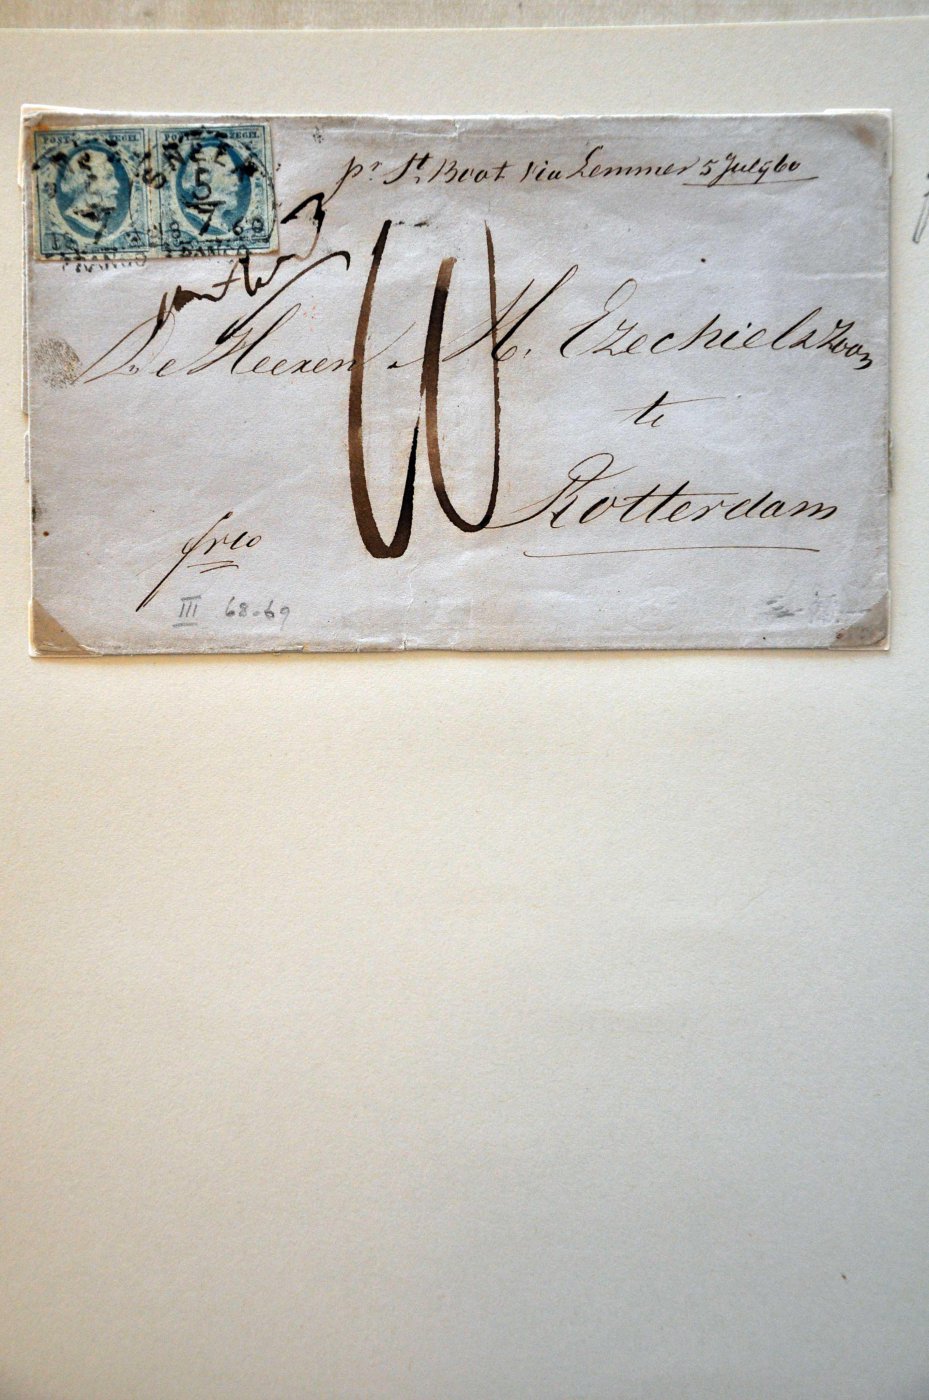 POST ZEGEL POST ZEGEL
SNEEK
5
7
60
FRANCO FRANCO
pr. St. Boot via Lemmer 5 July 60
De Heeren M. Ezechielszoon
te
Rotterdam
frco
III 68-69